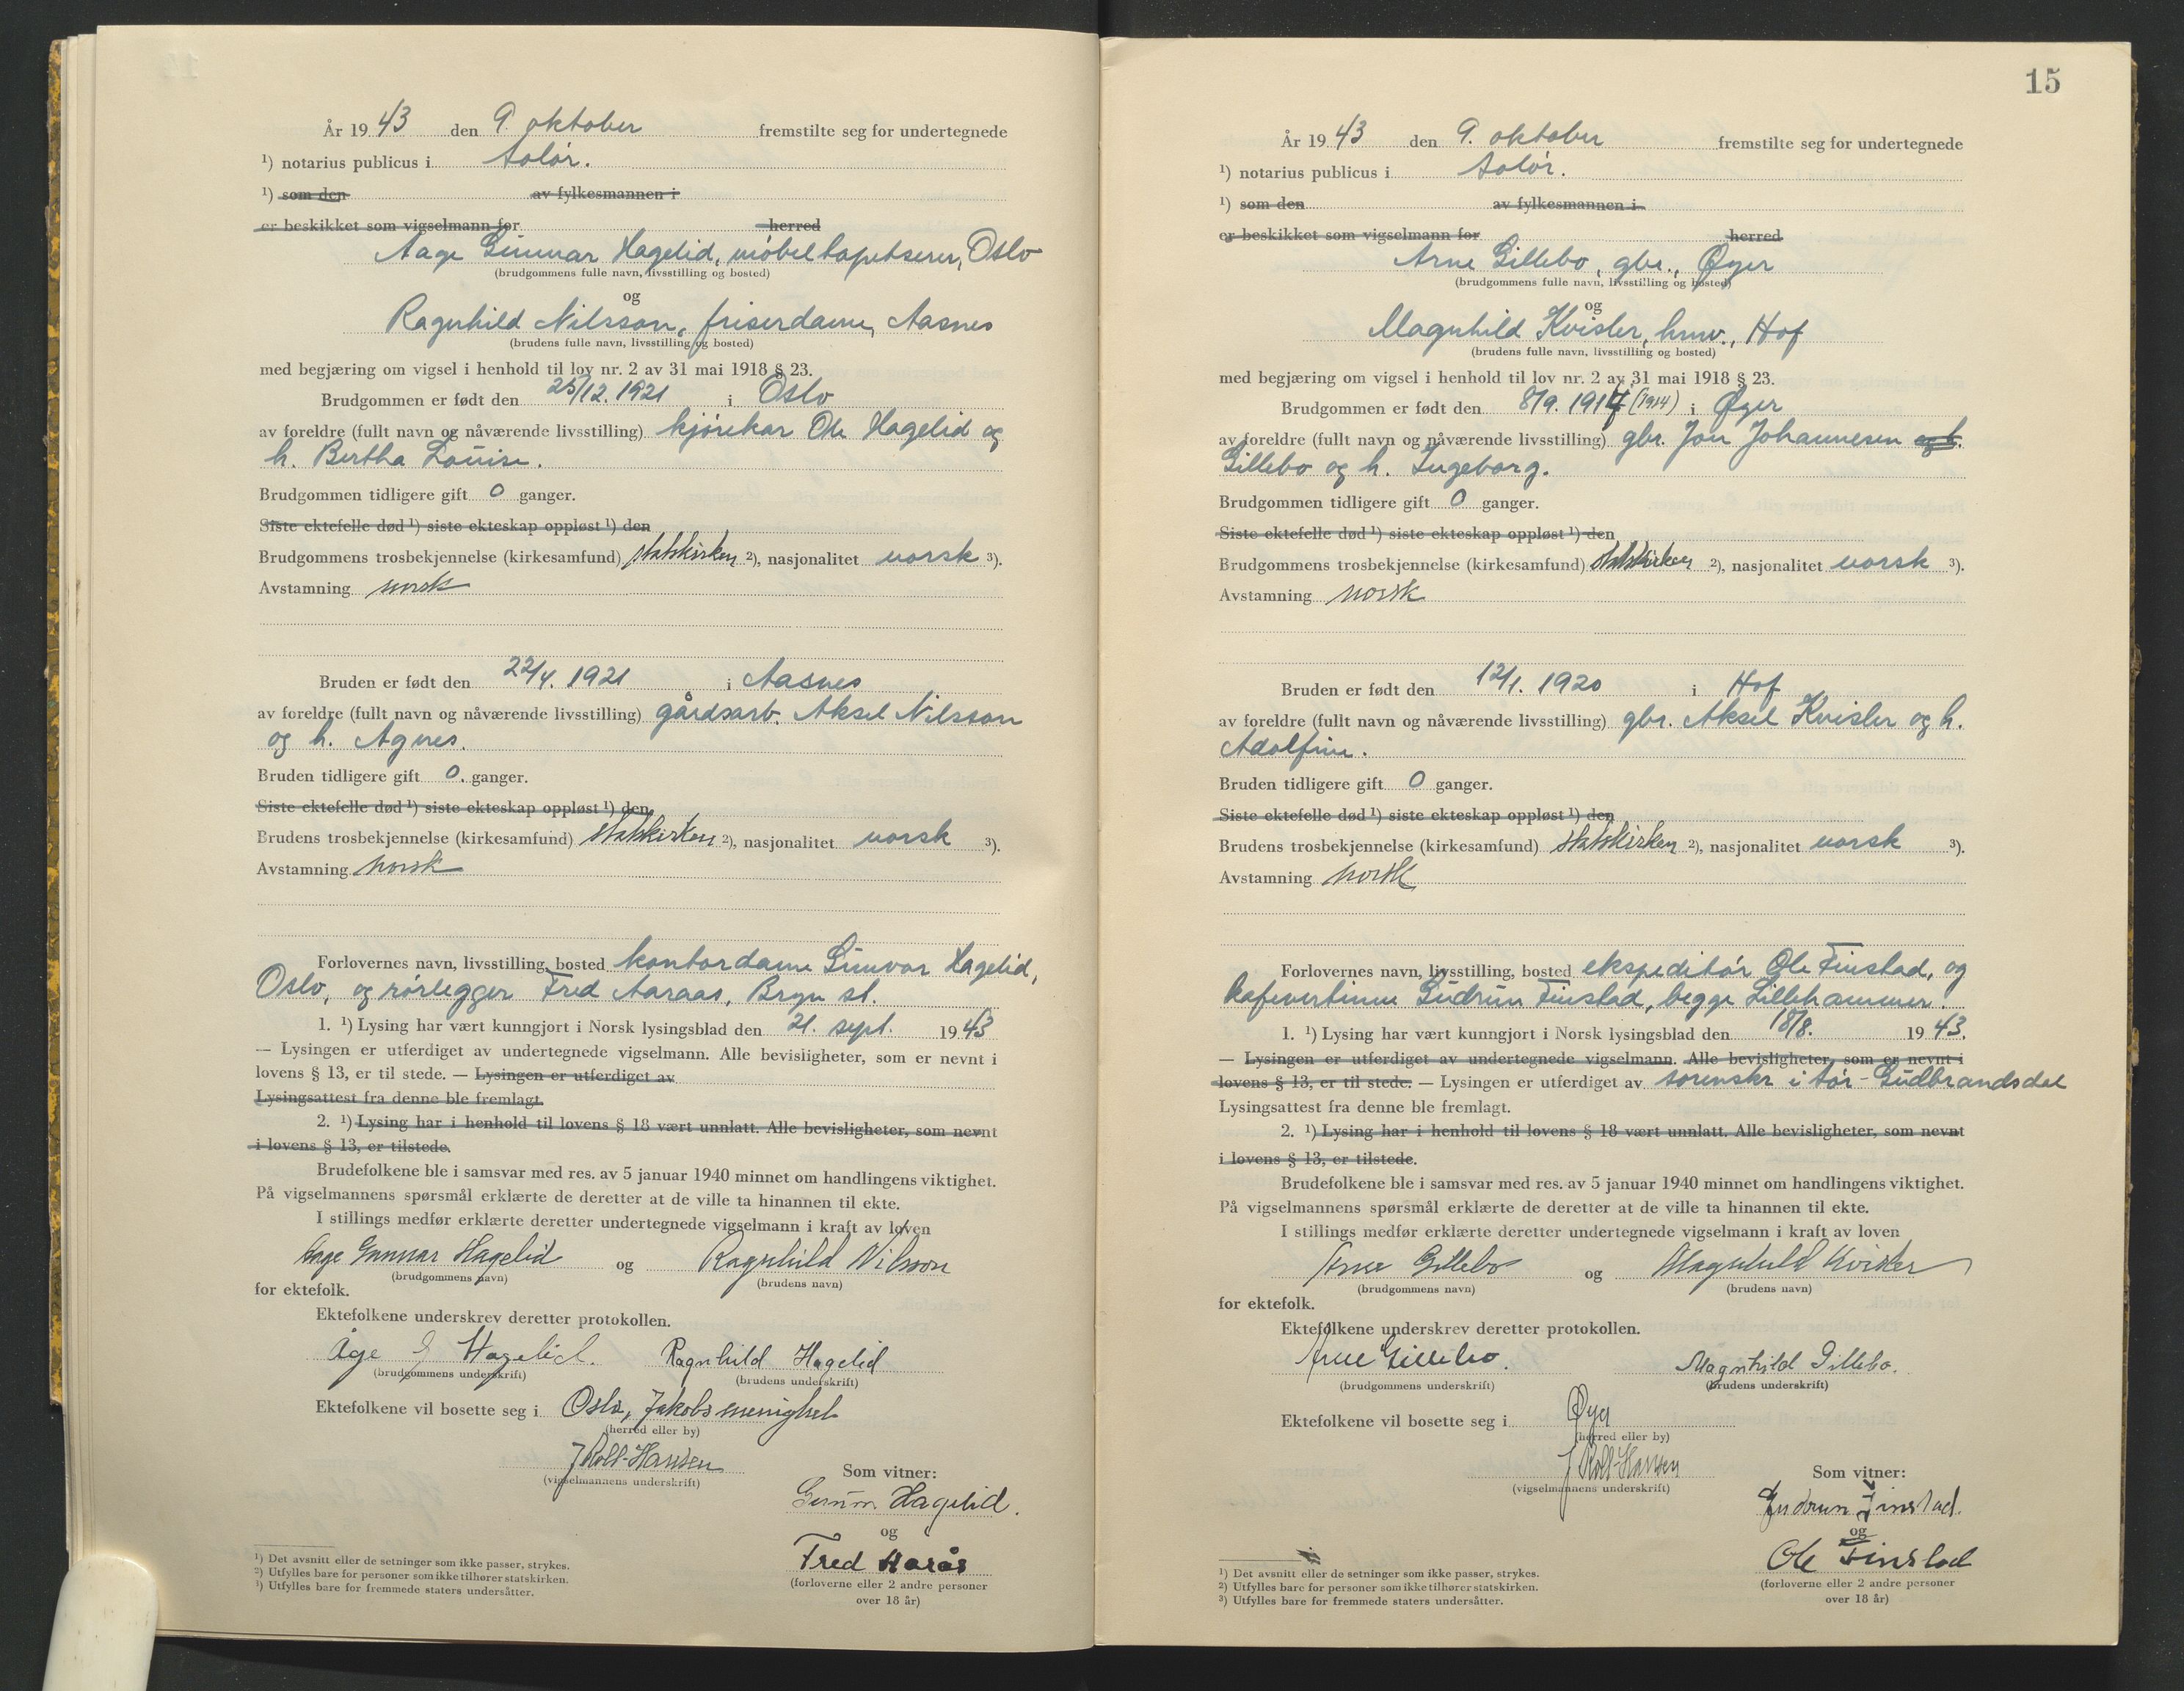 År 19 43 den 9. oktober fremstilte seg for undertegnede
¹) notarius publicus i Solør.
¹) som den av fylkesmannen i
er beskikket som vigselmann for herred
Aage Gunnar Hagelid, møbeltapetserer, Oslo
(brudgommens fulle navn, livsstilling og bosted)
og
Ragnhild Nilsson, friserdame, Aasnes
(brudens fulle navn, livsstilling og bosted)
med begjæring om vigsel i henhold til lov nr. 2 av 31 mai 1918 § 23.
Brudgommen er født den 25/12. 1921 i Oslo
av foreldre (fullt navn og nåværende livsstilling) kjørekar Ole Hagelid og
h. Bertha Louise.
Brudgommen tidligere gift 0 ganger.
Siste ektefelle død ¹) siste ekteskap oppløst ¹) den
Brudgommens trosbekjennelse (kirkesamfund) statskirken ²), nasjonalitet norsk ³).
Avstamning norsk
Bruden er født den 22/4. 1921 i Aasnes
av foreldre (fullt navn og nåværende livsstilling) gårdsarb. Aksel Nilsson
og h. Agnes.
Bruden tidligere gift 0. ganger.
Siste ektefelle død ¹) siste ekteskap oppløst ¹) den
Brudens trosbekjennelse (kirkesamfund) statskirken ²), nasjonalitet norsk ³).
Avstamning norsk
Forlovernes navn, livsstilling, bosted kontordame Gunvor Hagelid,
Oslo, og rørlegger Fred Aaraas, Bryn st.
1. ¹) Lysing har vært kunngjort i Norsk lysingsblad den 21. sept. 19 43
— Lysingen er utferdiget av undertegnede vigselmann. Alle bevisligheter, som er nevnt i
lovens § 13, er til stede. — Lysingen er utferdiget av
Lysingsattest fra denne ble fremlagt.
2. ¹) Lysing har i henhold til lovens § 18 vært unnlatt. Alle bevisligheter, som nevnt
i lovens § 13, er tilstede.
Brudefolkene ble i samsvar med res. av 5 januar 1940 minnet om handlingens viktighet.
På vigselmannens spørsmål erklærte de deretter at de ville ta hinannen til ekte.
I stillings medfør erklærte deretter undertegnede vigselmann i kraft av loven
Aage Gunnar Hagelid og Ragnhild Nilsson
(brudgommens navn) (brudens navn)
for ektefolk.
Ektefolkene underskrev deretter protokollen.
Åge G Hagelid. Ragnhild Hagelid
(brudgommens underskrift) (brudens underskrift)
Ektefolkene vil bosette seg i Oslo, Jakobs menighet
(herred eller by)
J Roll-Hansen
(vigselmannens underskrift)
Som vitner:
Gunvor Hagelid.
og
Fred Aarås
(forloverne eller 2 andre personer
over 18 år)
¹) Det avsnitt eller de setninger som ikke passer, strykes.
²) Utfylles bare for personer som ikke tilhører statskirken.
³) Utfylles bare for fremmede staters undersåtter.
15
År 19 43 den 9. oktober fremstilte seg for undertegnede
¹) notarius publicus i Solør.
¹) som den av fylkesmannen i
er beskikket som vigselmann for herred
Arne Gillebo, gbr., Øyer
(brudgommens fulle navn, livsstilling og bosted)
og
Magnhild Kvisler, hmv., Hof
(brudens fulle navn, livsstilling og bosted)
med begjæring om vigsel i henhold til lov nr. 2 av 31 mai 1918 § 23.
Brudgommen er født den 8/9. 1914 (1914) i Øyer
av foreldre (fullt navn og nåværende livsstilling) gbr. Jon Johannesen og h.
Gillebo og h. Ingeborg.
Brudgommen tidligere gift 0 ganger.
Siste ektefelle død ¹) siste ekteskap oppløst ¹) den
Brudgommens trosbekjennelse (kirkesamfund) statskirken ²), nasjonalitet norsk ³).
Avstamning norsk
Bruden er født den 12/1. 1920 i Hof
av foreldre (fullt navn og nåværende livsstilling) gbr. Aksel Kvisler og h.
Adolfine.
Bruden tidligere gift 0 ganger.
Siste ektefelle død ¹) siste ekteskap oppløst ¹) den
Brudens trosbekjennelse (kirkesamfund) statskirken ²), nasjonalitet norsk ³).
Avstamning norsk
Forlovernes navn, livsstilling, bosted ekspeditør Ole Finstad, og
kafevertinne Gudrun Finstad, begge Lillehammer.
1. ¹) Lysing har vært kunngjort i Norsk lysingsblad den 18/8. 19 43.
— Lysingen er utferdiget av undertegnede vigselmann. Alle bevisligheter, som er nevnt i
lovens § 13, er til stede. — Lysingen er utferdiget av sorenskr i Sør-Gudbrandsdal
Lysingsattest fra denne ble fremlagt.
2. ¹) Lysing har i henhold til lovens § 18 vært unnlatt. Alle bevisligheter, som nevnt
i lovens § 13, er tilstede.
Brudefolkene ble i samsvar med res. av 5 januar 1940 minnet om handlingens viktighet.
På vigselmannens spørsmål erklærte de deretter at de ville ta hinannen til ekte.
I stillings medfør erklærte deretter undertegnede vigselmann i kraft av loven
Arne Gillebo og Magnhild Kvisler
(brudgommens navn) (brudens navn)
for ektefolk.
Ektefolkene underskrev deretter protokollen.
Arne Gillebo. Magnhild Gillebo.
(brudgommens underskrift) (brudens underskrift)
Ektefolkene vil bosette seg i Øyer
(herred eller by)
J Roll-Hansen
(vigselmannens underskrift)
Som vitner:
Gudrun Finstad.
og
Ole Finstad
(forloverne eller 2 andre personer
over 18 år)
¹) Det avsnitt eller de setninger som ikke passer, strykes.
²) Utfylles bare for personer som ikke tilhører statskirken.
³) Utfylles bare for fremmede staters undersåtter.